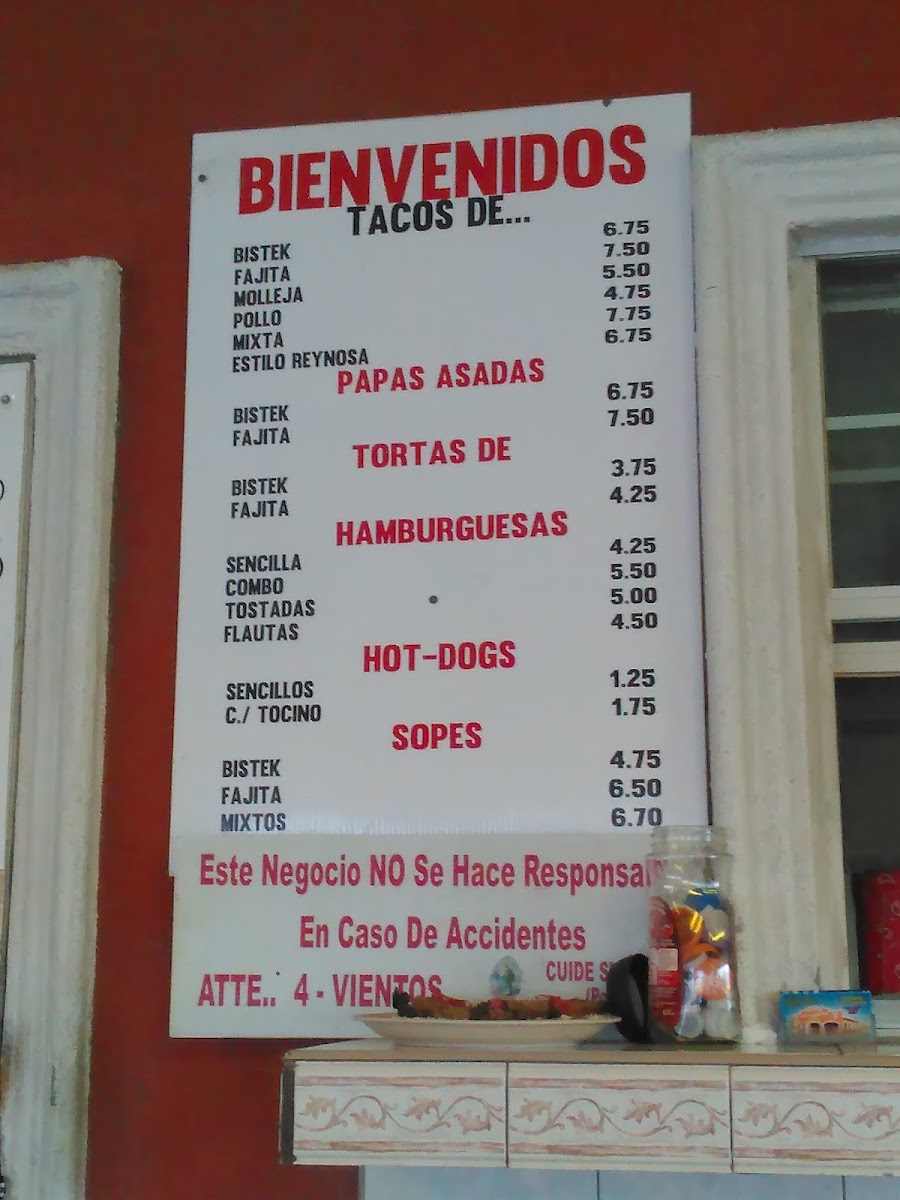 BIENVENIDOS
TACOS DE...
BISTEK 6.75
FAJITA 7.50
MOLLEJA 5.50
POLLO 4.75
MIXTA 7.75
ESTILO REYNOSA 6.75
PAPAS ASADAS
BISTEK 6.75
FAJITA 7.50
TORTAS DE
BISTEK 3.75
FAJITA 4.25
HAMBURGUESAS
SENCILLA 4.25
COMBO 5.50
TOSTADAS 5.00
FLAUTAS 4.50
HOT-DOGS
SENCILLOS 1.25
C./ TOCINO 1.75
SOPES
BISTEK 4.75
FAJITA 6.50
MIXTOS 6.70
Este Negocio NO Se Hace
En Caso De Accidentes
CUIDE
ATTE.. 4 - VIENTOS